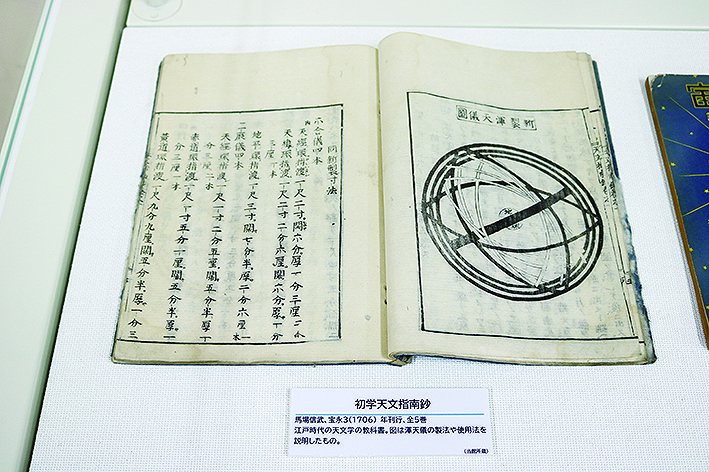 新製渾天儀圖
同新製寸法
六合儀四本
天經環指渡一尺二寸闊六分厚一分三厘二本
天緯環指渡一尺二寸二分六厘闊六分厚一分
三厘一本
地平環指渡一尺三寸闊七分半厚二分六厘
儀四本
天經環指渡一尺一寸二分五厘闊五分半厚一
分三厘二本
赤道環指渡一尺一寸五分一厘闊五分半厚一
分三厘一本
黄道環指渡一尺九分九厘闊五分半厚一分三
初学天文指南鈔
馬場信武、宝永3(1706) 年刊行、全5巻
江戸時代の天文学の教科書。図は渾天儀の製法や使用法を
説明したもの。
(当館所蔵)